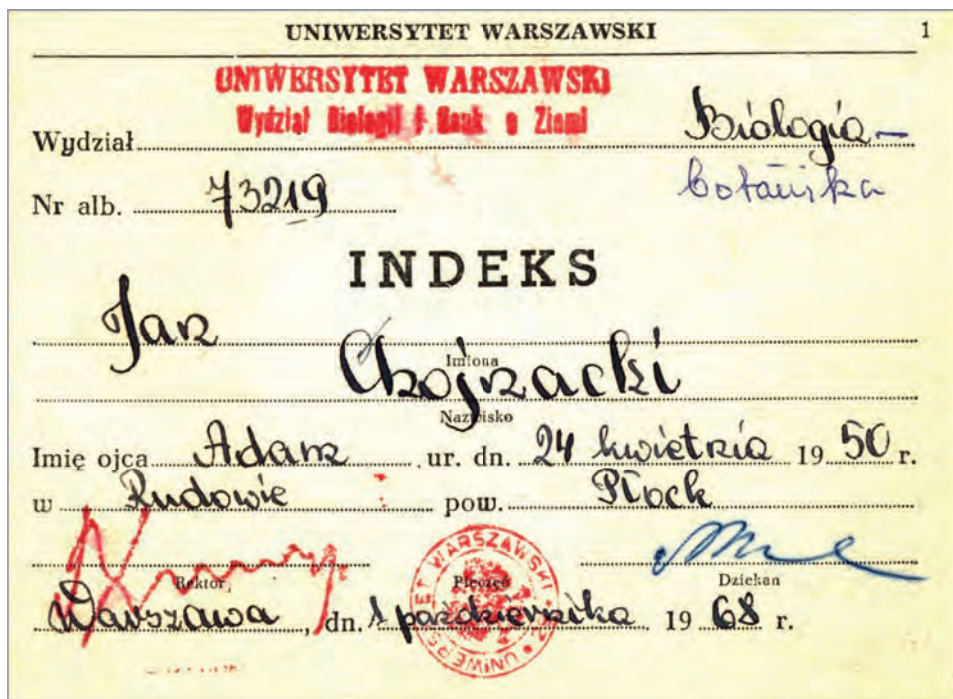 UNIWERSYTET WARSZAWSKI 1
UNIWERSYTET WARSZAWSKI
Wydział Biologii i Nauk o Ziemi
Wydział Biologia –
Nr alb. 73219 botanika
INDEKS
Jan
Imiona
Chojnacki
Nazwisko
Imię ojca Adam ur. dn. 24 kwietnia 1950 r.
w Rudowie pow. Płock
Rektor Pieczęć Dziekan
UNIWERSYTET WARSZAWSKI
Warszawa, dn. 1 października 1968 r.